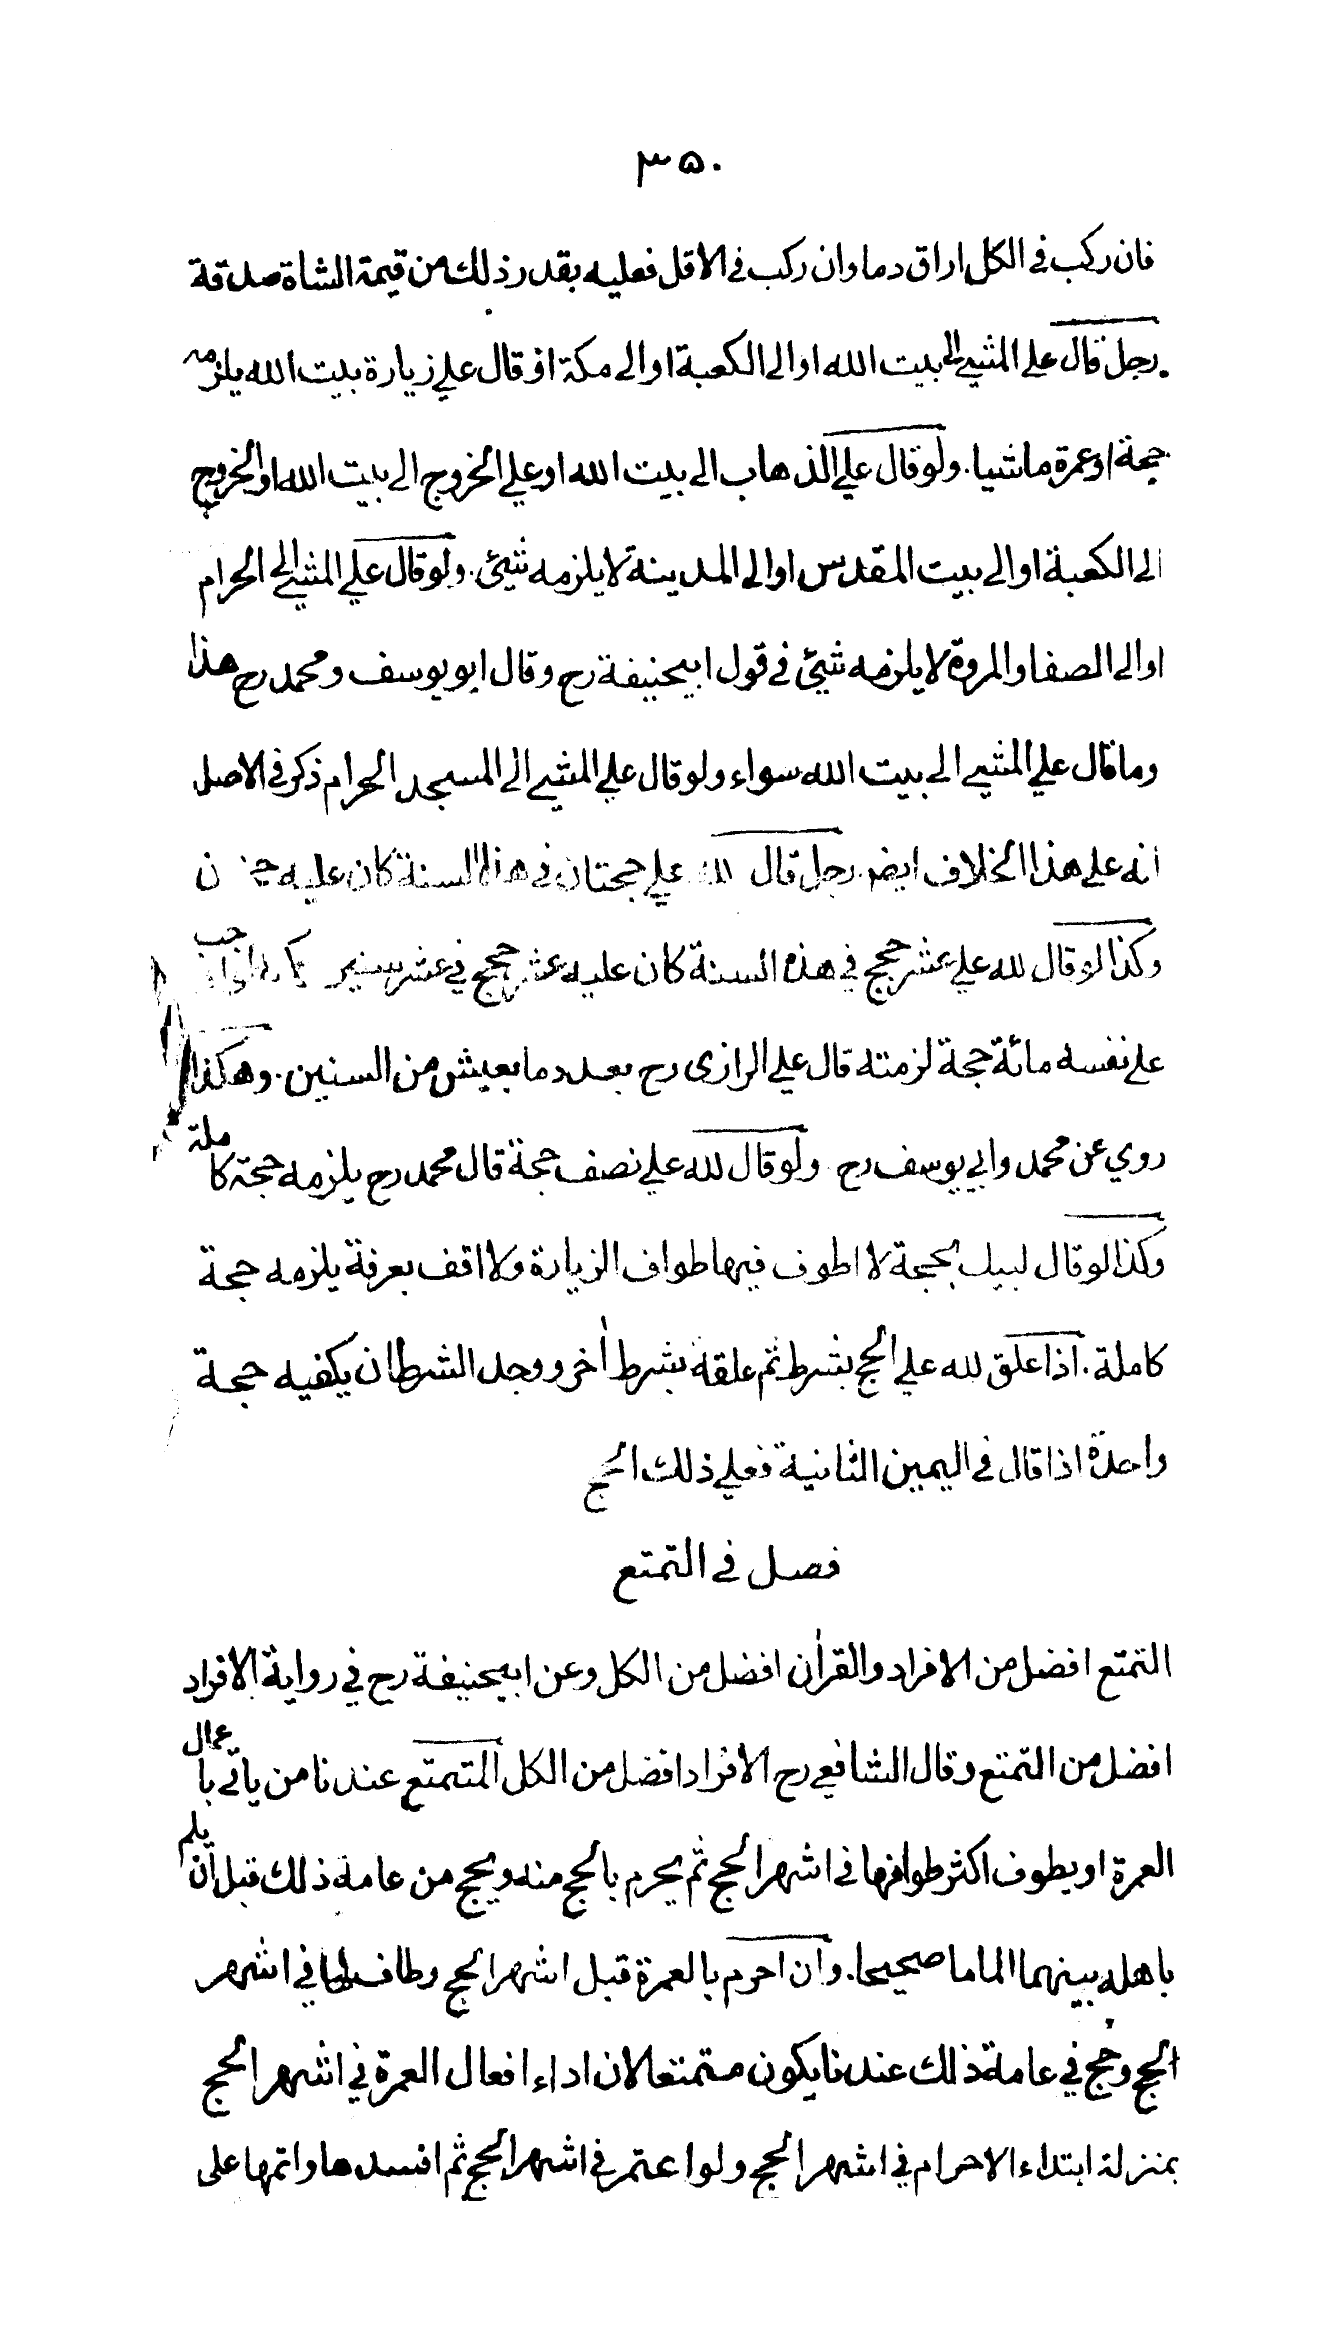 ۳۵۰
فان ركب فى الكل اراق دما وان ركب فى الاقل فعليه بقدر ذلك من قيمة الشاة صدقة
رجل قال علي المشي الى بيت الله او الى الكعبة او الى مكة او قال علي زيارة بيت الله يلزمه
حجة او عمرة ماشيا. ولو قال علي الذهاب الى بيت الله او علي الخروج الى بيت الله او الخروج
الى الكعبة او الى بيت المقدس او الى المدينة لا يلزمه شيئ. ولو قال علي المشي الى الحرام
او الى الصفا والمروة لا يلزمه شيئ في قول ابيحنيفة رح وقال ابو يوسف ومحمد رح هذا
وما قال علي المشي الى بيت الله سواء ولو قال علي المشي الى المسجد الحرام ذكر فى الاصل
انه على هذا الخلاف ايضا. رجل قال لله علي حجتان في هذه السنة كان عليه
وكذا لو قال لله علي عشر حجج في هذه السنة كان عليه عشر حجج في عشر سنين
على نفسه مائة حجة لزمته قال علي الرازى رح بعدد ما يعيش من السنين. وهكذا
روي عن محمد وابي يوسف رح ولو قال لله علي نصف حجة قال محمد رح يلزمه حجة كاملة
وكذا لو قال لبيك بحجة لا اطوف فيها طواف الزيارة ولا اقف بعرفة يلزمه حجة
كاملة. اذا علق لله علي الحج بشرط ثم علقه بشرط اٰخر ووجد الشرطان يكفيه حجة
واحدة اذا قال في اليمين الثانية فعلي ذلك الحج
فصل في التمتع
التمتع افضل من الافراد والقراٰن افضل من الكل وعن ابيحنيفة رح في رواية الافراد
افضل من التمتع وقال الشافعي رح الافراد افضل من الكل المتمتع عندنا من ياتي باعمال
العمرة او يطوف اكثر طوافها في اشهر الحج ثم يحرم بالحج منه ويحج من عامه ذلك قبل ان يلم
باهله بينهما الماما صحيحا. وان احرم بالعمرة قبل اشهر الحج وطاف لها في اشهر
الحج وحج في عامة ذلك عندنا يكون متمتعا لان اداء افعال العمرة في اشهر الحج
بمنزلة ابتداء الاحرام في اشهر الحج ولو اعتمر في اشهر الحج ثم افسدها واتمها على